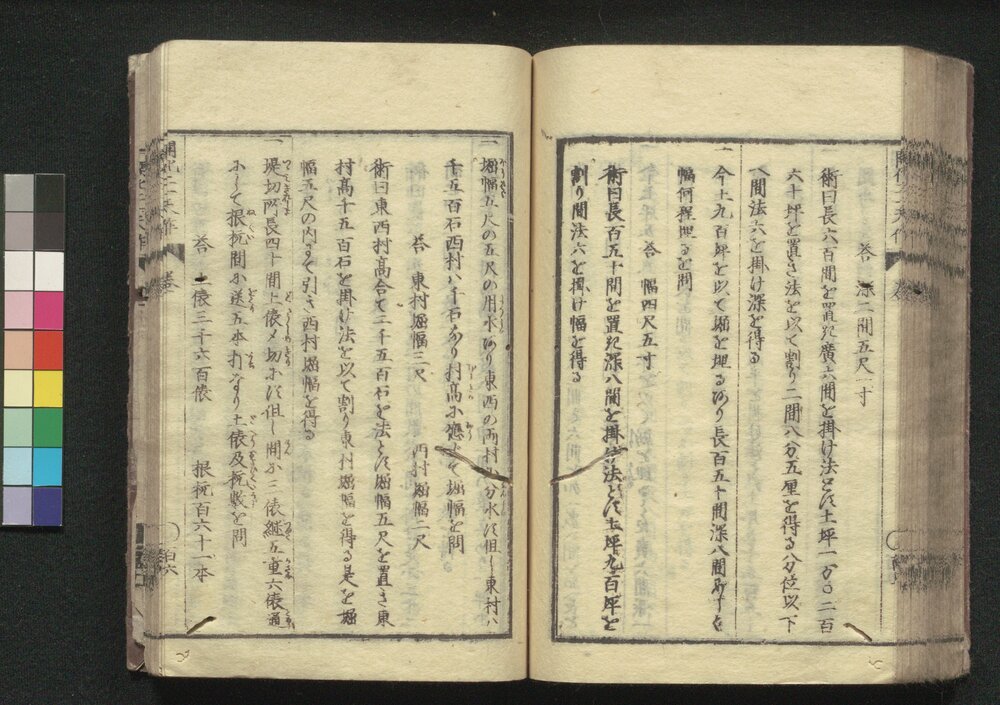 答 深二間五尺一寸
術曰長六百間を置廣六間を掛け法とす土坪一万〇二百
六十坪を置き法を以て割り二間八分五厘を得る八分位以下
八間法六を掛け深を得る
一 今土九百坪を以て堀を埋るあり長百五十間深八間
幅何程埋るを問
答 幅四尺五寸
術曰長百五十間を置深八間を掛け法とす土坪九百坪を
割り間法六を掛け幅を得る
一 堀幅五尺の五尺の用水あり東西の両村に分水す但し東村ハ
千五百石西村ハ千石あり村高に應じて堀幅を問
答 東村堀幅三尺 西村堀幅二尺
術曰東西村高合て二千五百石を法とす堀幅五尺を置き東
村高千五百石を掛け法を以て割り東村堀幅を得る是を堀
幅五尺の内にて引き西村堀幅を得る
一 堤切所長四十間土俵〆切にす但し一間に三俵継五重六俵通
にして根杭間に送五本打なり土俵及杭数を問
答 土俵三千六百俵 根杭百六十一本